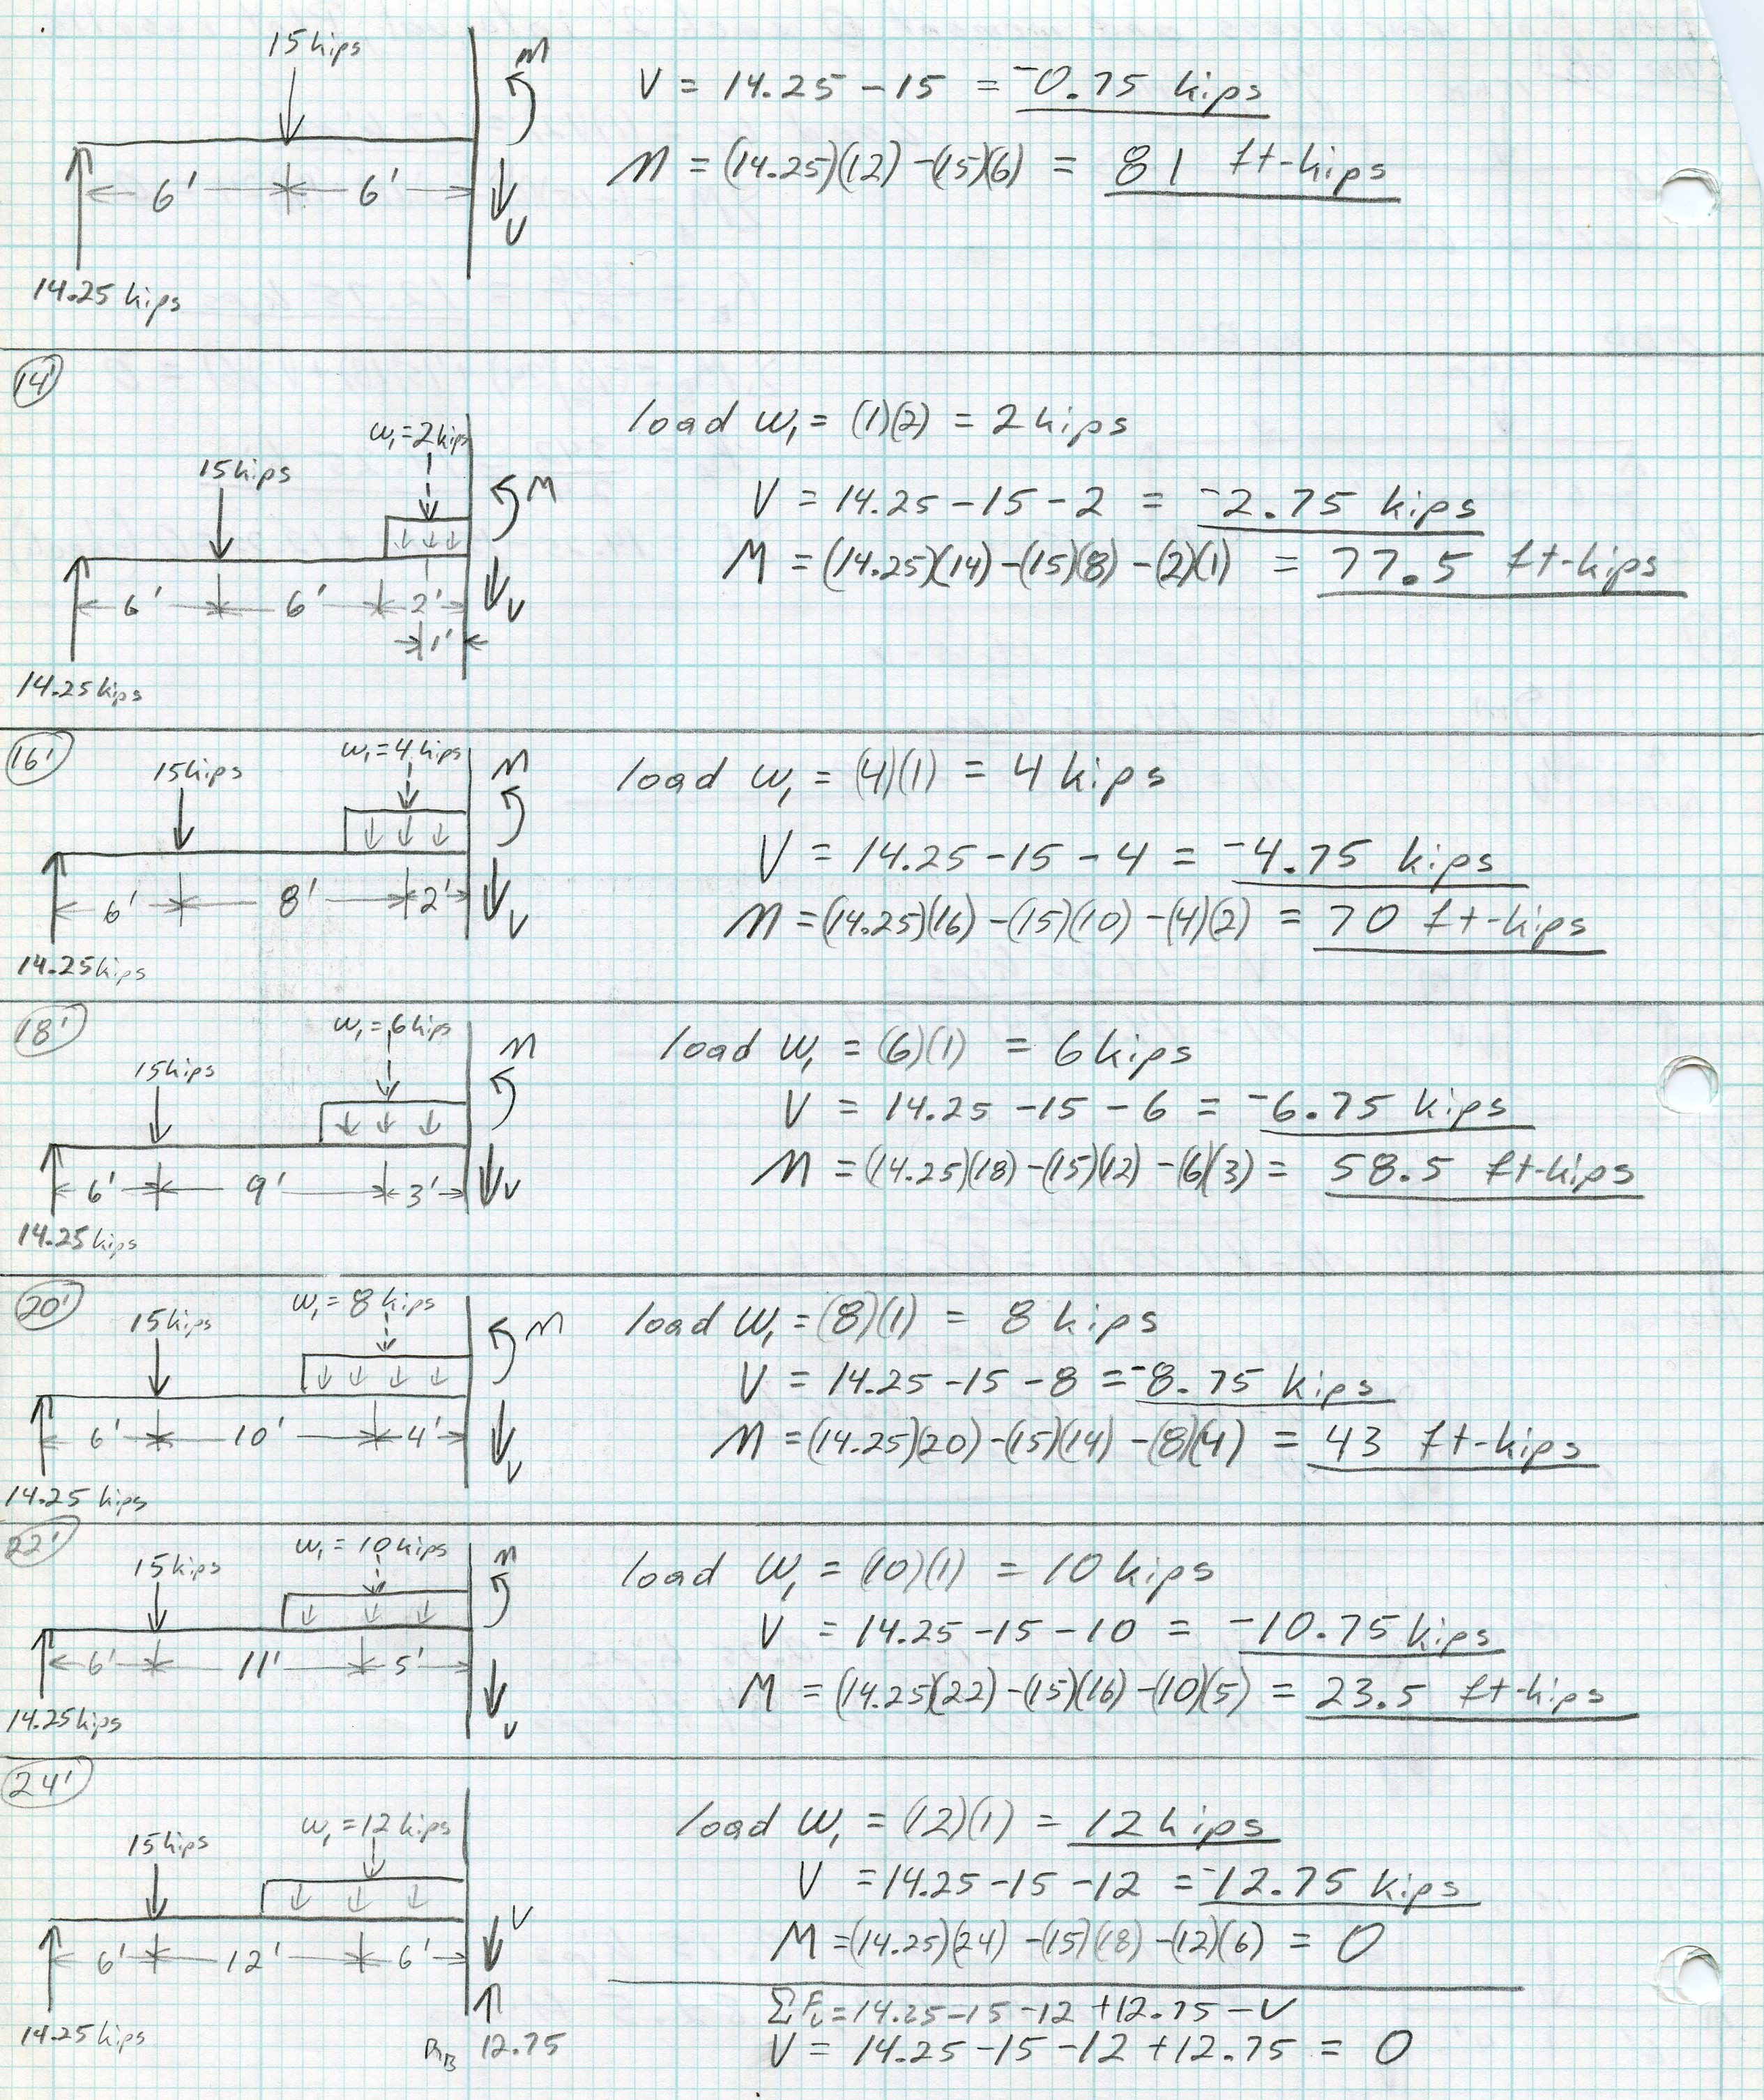 15 kips
M
V = 14.25 - 15 = -0.75 kips
M = (14.25)(12) - (15)(6) = 81 ft-kips
6' 6'
V
14.25 kips
14'
load w₁ = (1)(2) = 2 kips
w₁ = 2 kips
15 kips
M
V = 14.25 - 15 - 2 = -2.75 kips
M = (14.25)(14) - (15)(8) - (2)(1) = 77.5 ft-kips
6' 6' 2'
V
1'
14.25 kips
16'
w₁ = 4 kips
15 kips
M
load w₁ = (4)(1) = 4 kips
V = 14.25 - 15 - 4 = -4.75 kips
M = (14.25)(16) - (15)(10) - (4)(2) = 70 ft-kips
6' 8' 2'
V
14.25 kips
18'
w₁ = 6 kips
15 kips
M
load w₁ = (6)(1) = 6 kips
V = 14.25 - 15 - 6 = -6.75 kips
M = (14.25)(18) - (15)(12) - (6)(3) = 58.5 ft-kips
6' 9' 3'
V
14.25 kips
20'
w₁ = 8 kips
15 kips
M
load w₁ = (8)(1) = 8 kips
V = 14.25 - 15 - 8 = -8.75 kips
M = (14.25)(20) - (15)(14) - (8)(4) = 43 ft-kips
6' 10' 4'
V
14.25 kips
22'
w₁ = 10 kips
15 kips
M
load w₁ = (10)(1) = 10 kips
V = 14.25 - 15 - 10 = -10.75 kips
M = (14.25)(22) - (15)(16) - (10)(5) = 23.5 ft-kips
6' 11' 5'
V
14.25 kips
24'
w₁ = 12 kips
15 kips
load w₁ = (12)(1) = 12 kips
V = 14.25 - 15 - 12 = -12.75 kips
V
M = (14.25)(24) - (15)(18) - (12)(6) = 0
6' 12' 6'
14.25 kips
R_B 12.75
V = 14.25 - 15 - 12 + 12.75 = 0